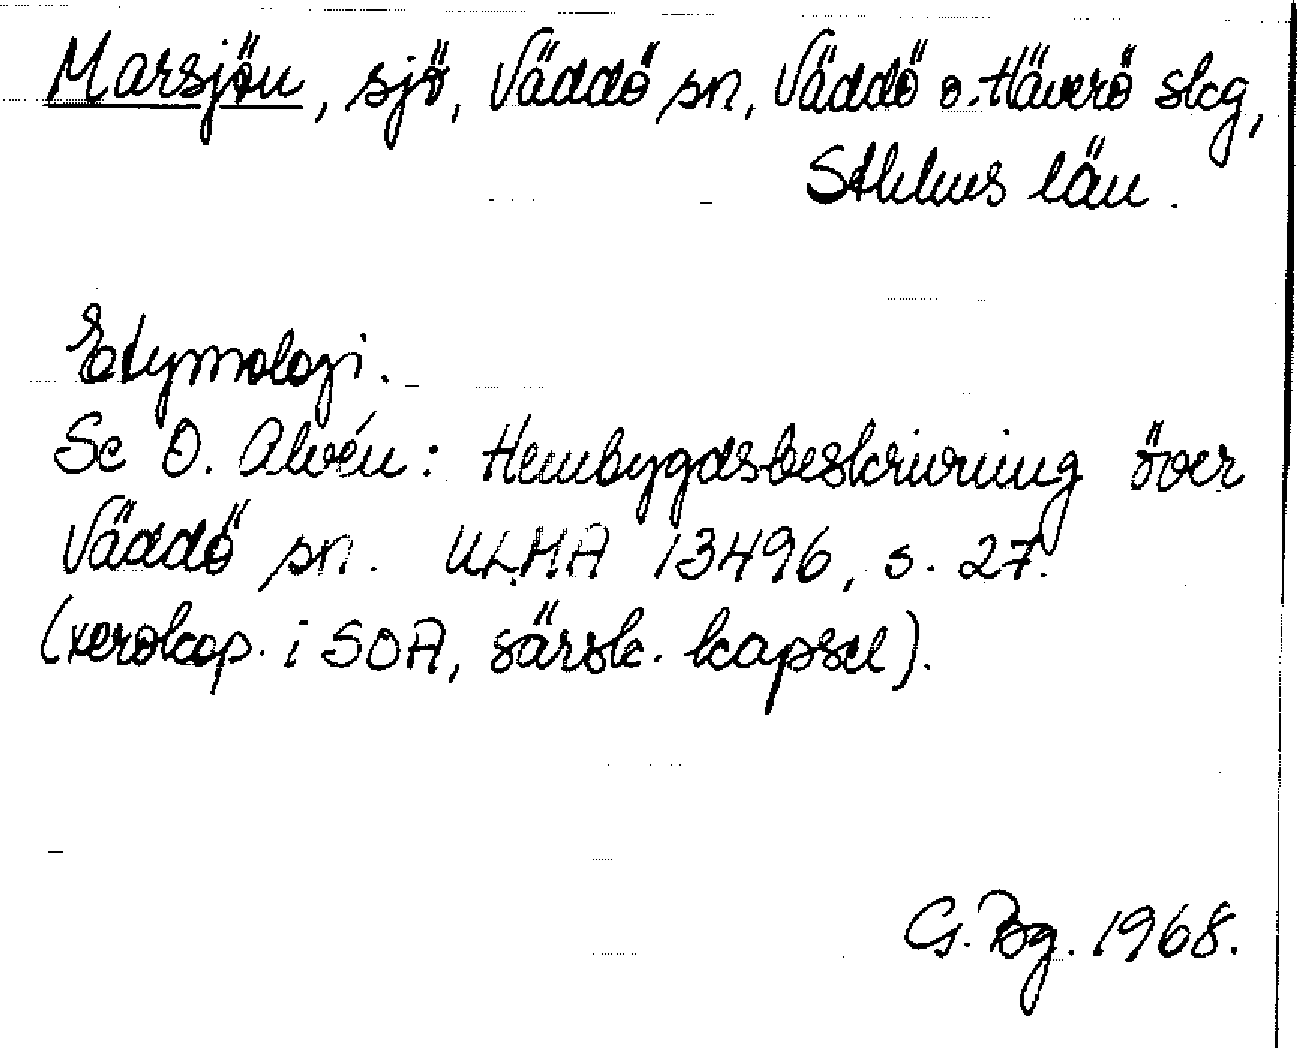 Marsjön, sjö, Väddö sn, Väddö o. Häverö skg,
Sthlms län.
Etymologi.
Se O. Alvén: Hembygdsbeskrivning över
Väddö sn. ULMA 13496, s. 27.
(xerokop. i SOA, särsk. kapsel).
G. Bg. 1968.